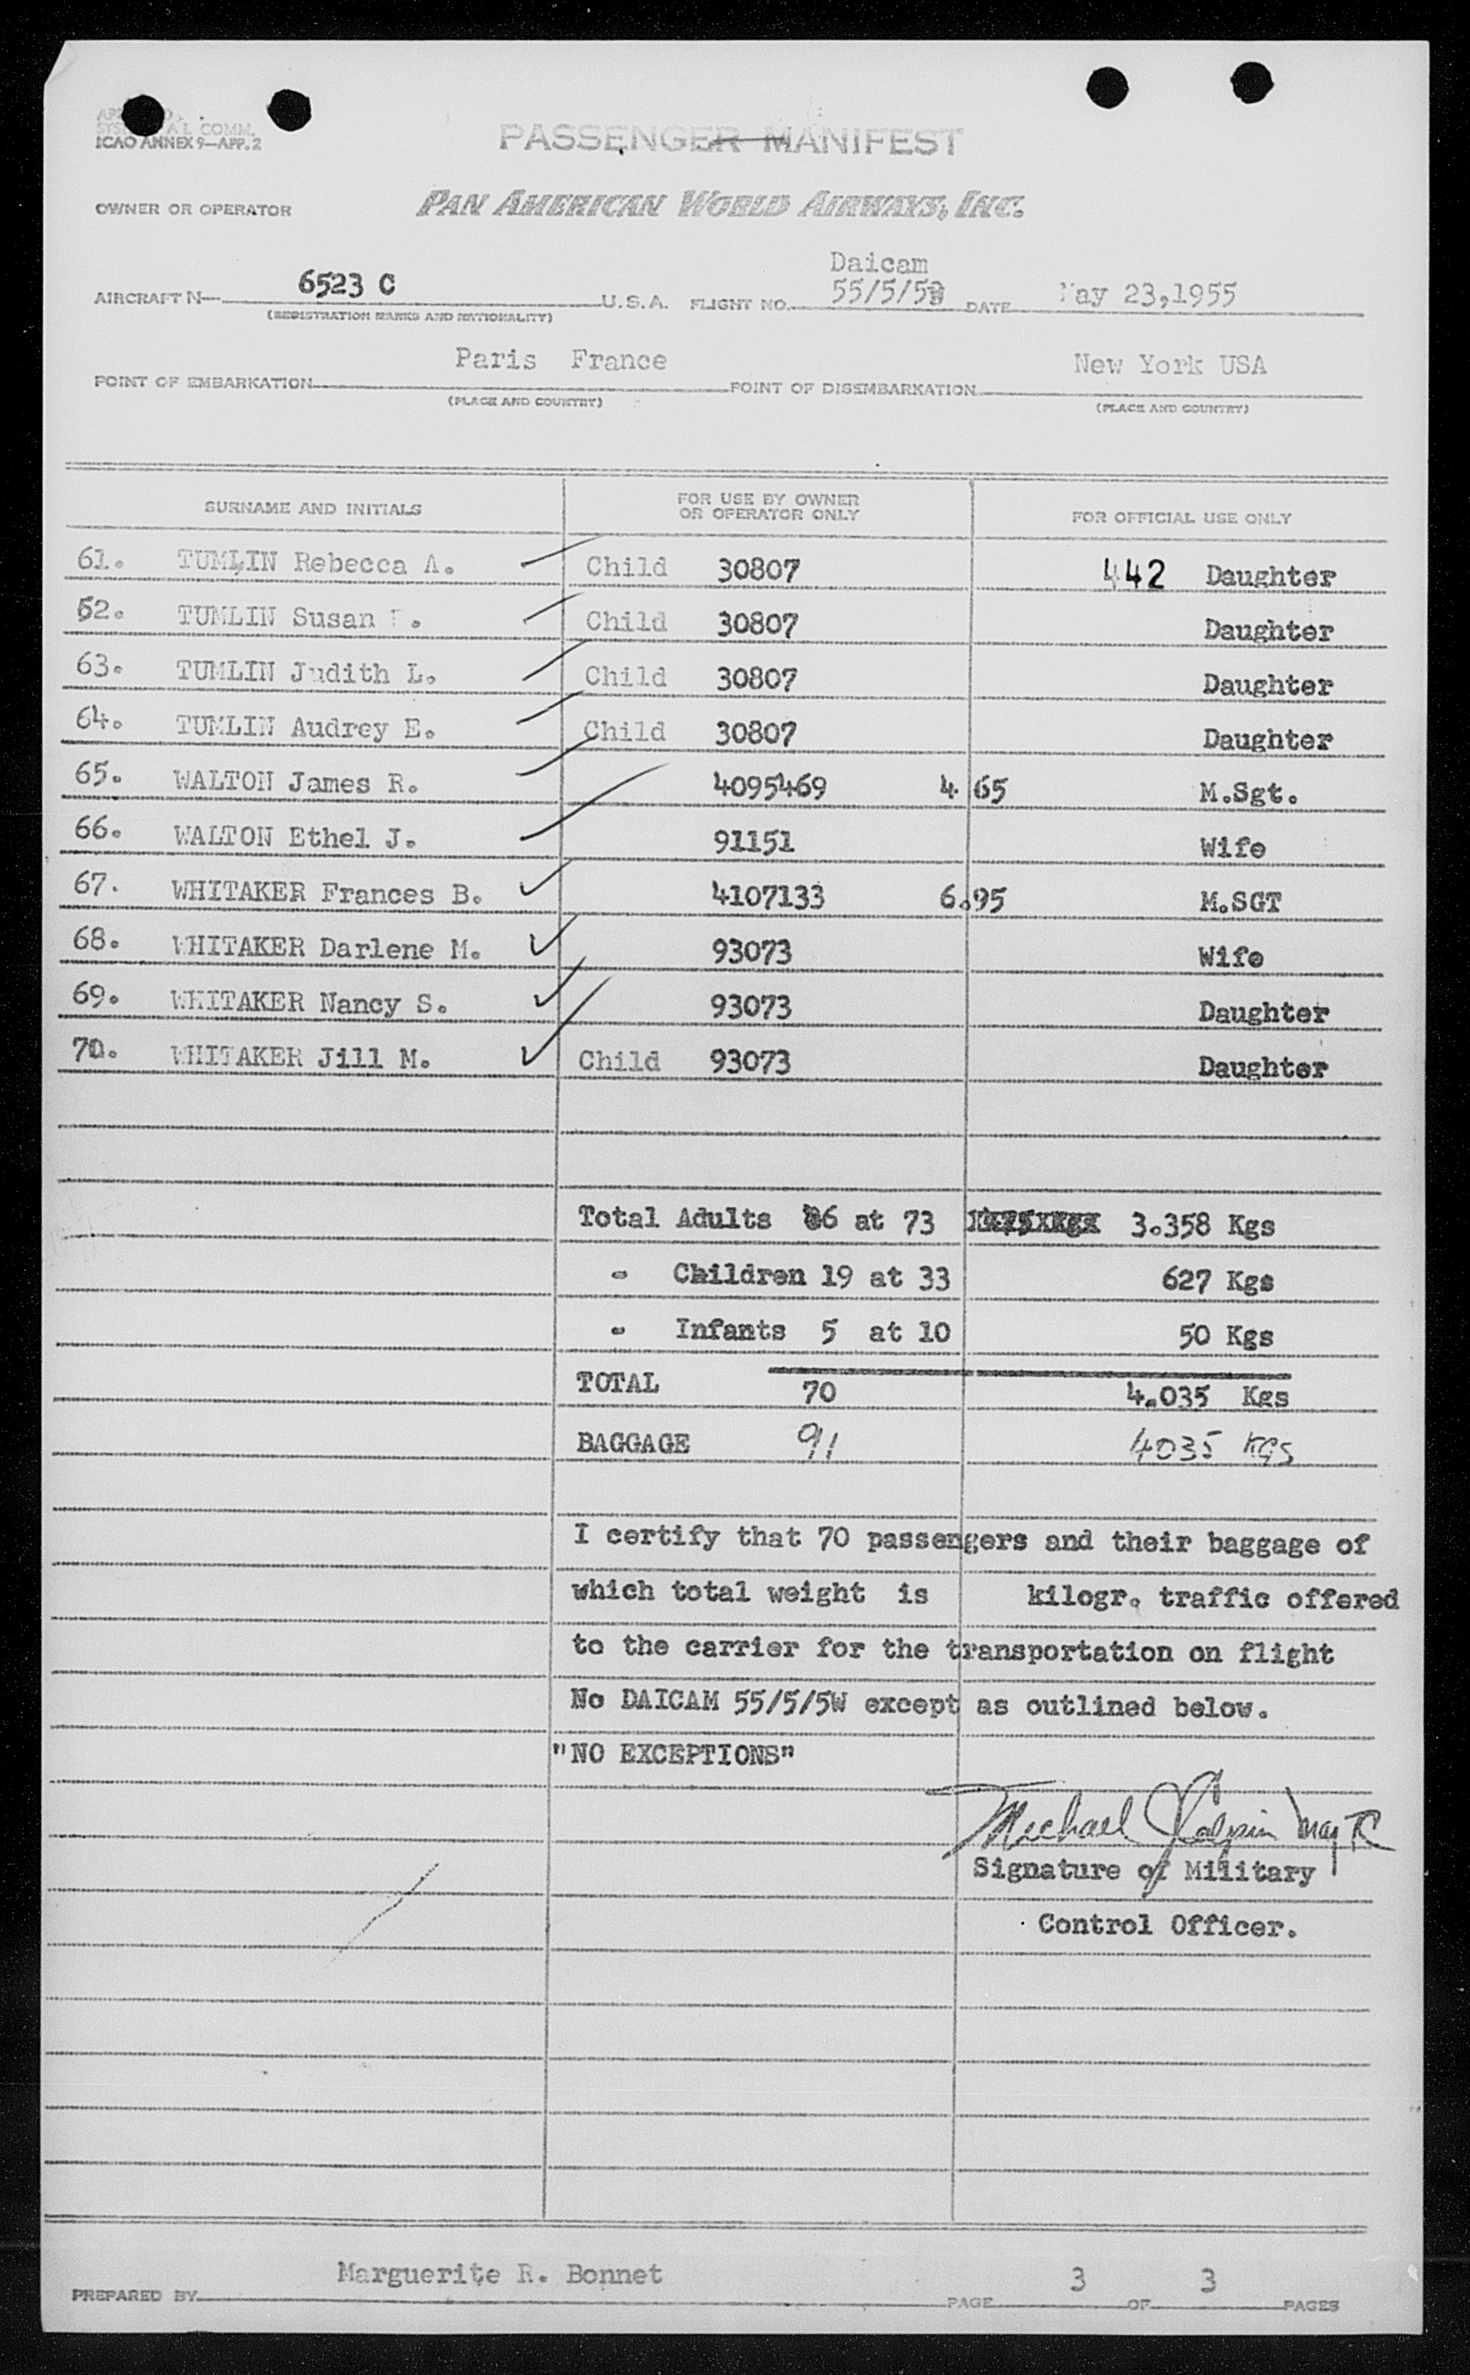 ICAO ANNEX 9—APP. 2
PASSENGER MANIFEST
OWNER OR OPERATOR PAN AMERICAN WORLD AIRWAYS, INC.
Daicam
AIRCRAFT N— 6523 C U.S.A. FLIGHT NO. 55/5/5 DATE May 23,1955
(REGISTRATION MARKS AND NATIONALITY)
POINT OF EMBARKATION Paris France POINT OF DISEMBARKATION New York USA
(PLACE AND COUNTRY) (PLACE AND COUNTRY)
SURNAME AND INITIALS FOR USE BY OWNER OR OPERATOR ONLY FOR OFFICIAL USE ONLY
61. TUMLIN Rebecca A. Child 30807 442 Daughter
62. TUMLIN Susan Child 30807 Daughter
63. TUMLIN Judith L. Child 30807 Daughter
64. TUMLIN Audrey E. Child 30807 Daughter
65. WALTON James R. 4095469 4.65 M.Sgt.
66. WALTON Ethel J. 91151 Wife
67. WHITAKER Frances B. 4107133 6.95 M.SGT
68. WHITAKER Darlene M. 93073 Wife
69. WHITAKER Nancy S. 93073 Daughter
70. WHITAKER Jill M. Child 93073 Daughter
Total Adults 46 at 73 3.358 Kgs
" Children 19 at 33 627 Kgs
" Infants 5 at 10 50 Kgs
TOTAL 70 4.035 Kgs
BAGGAGE 91 4035 KGS
I certify that 70 passengers and their baggage of
which total weight is kilogr. traffic offered
to the carrier for the transportation on flight
No DAICAM 55/5/5W except as outlined below.
"NO EXCEPTIONS"
Michael J Galpin Maj TC
Signature of Military
Control Officer.
Marguerite R. Bonnet
PREPARED BY PAGE 3 OF 3 PAGES